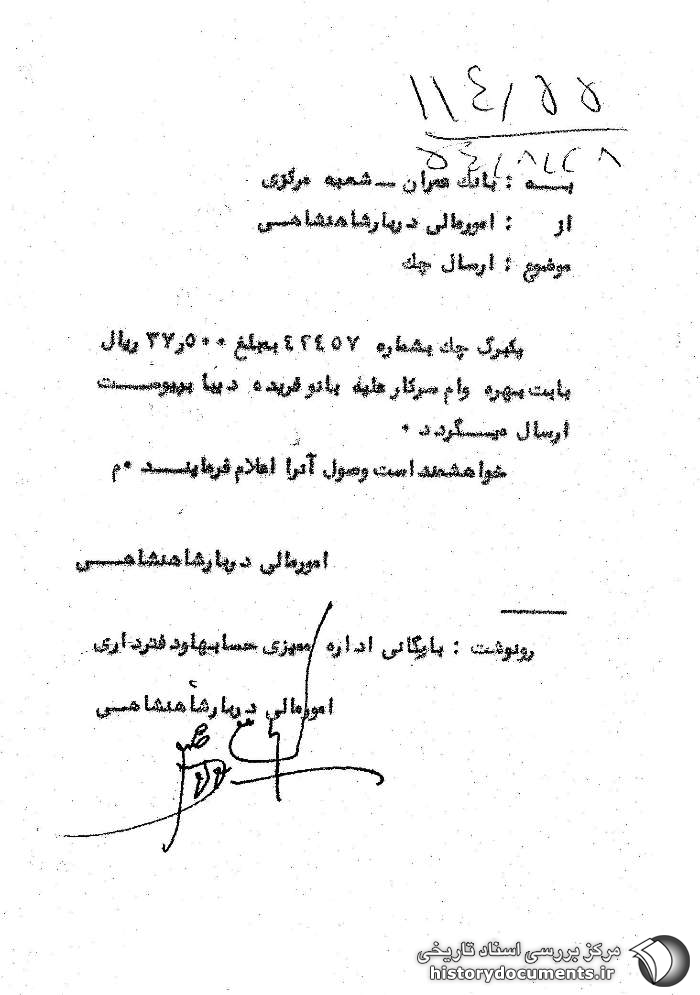 به : بانك عمران ــ شعبه مركزی
از : امورمالی دربارشاهنشاهی
موضوع : ارسال چك
یكبرگ چك بشماره ٤٢٤٥٧ بمبلغ ٣٧ر٥٠٠ ریال
بابت بهره وام سركار علیه بانو فریده دیبا بپیوست
ارسال میگردد ٠
خواهشمند است وصول آنرا اعلام فرمایند ٠م
امورمالی دربارشاهنشاهی
رونوشت : بایگانی اداره ممیزی حسابهاودفترداری
امورمالی دربارشاهنشاهی
مركز بررسی اسناد تاریخی
historydocuments.ir